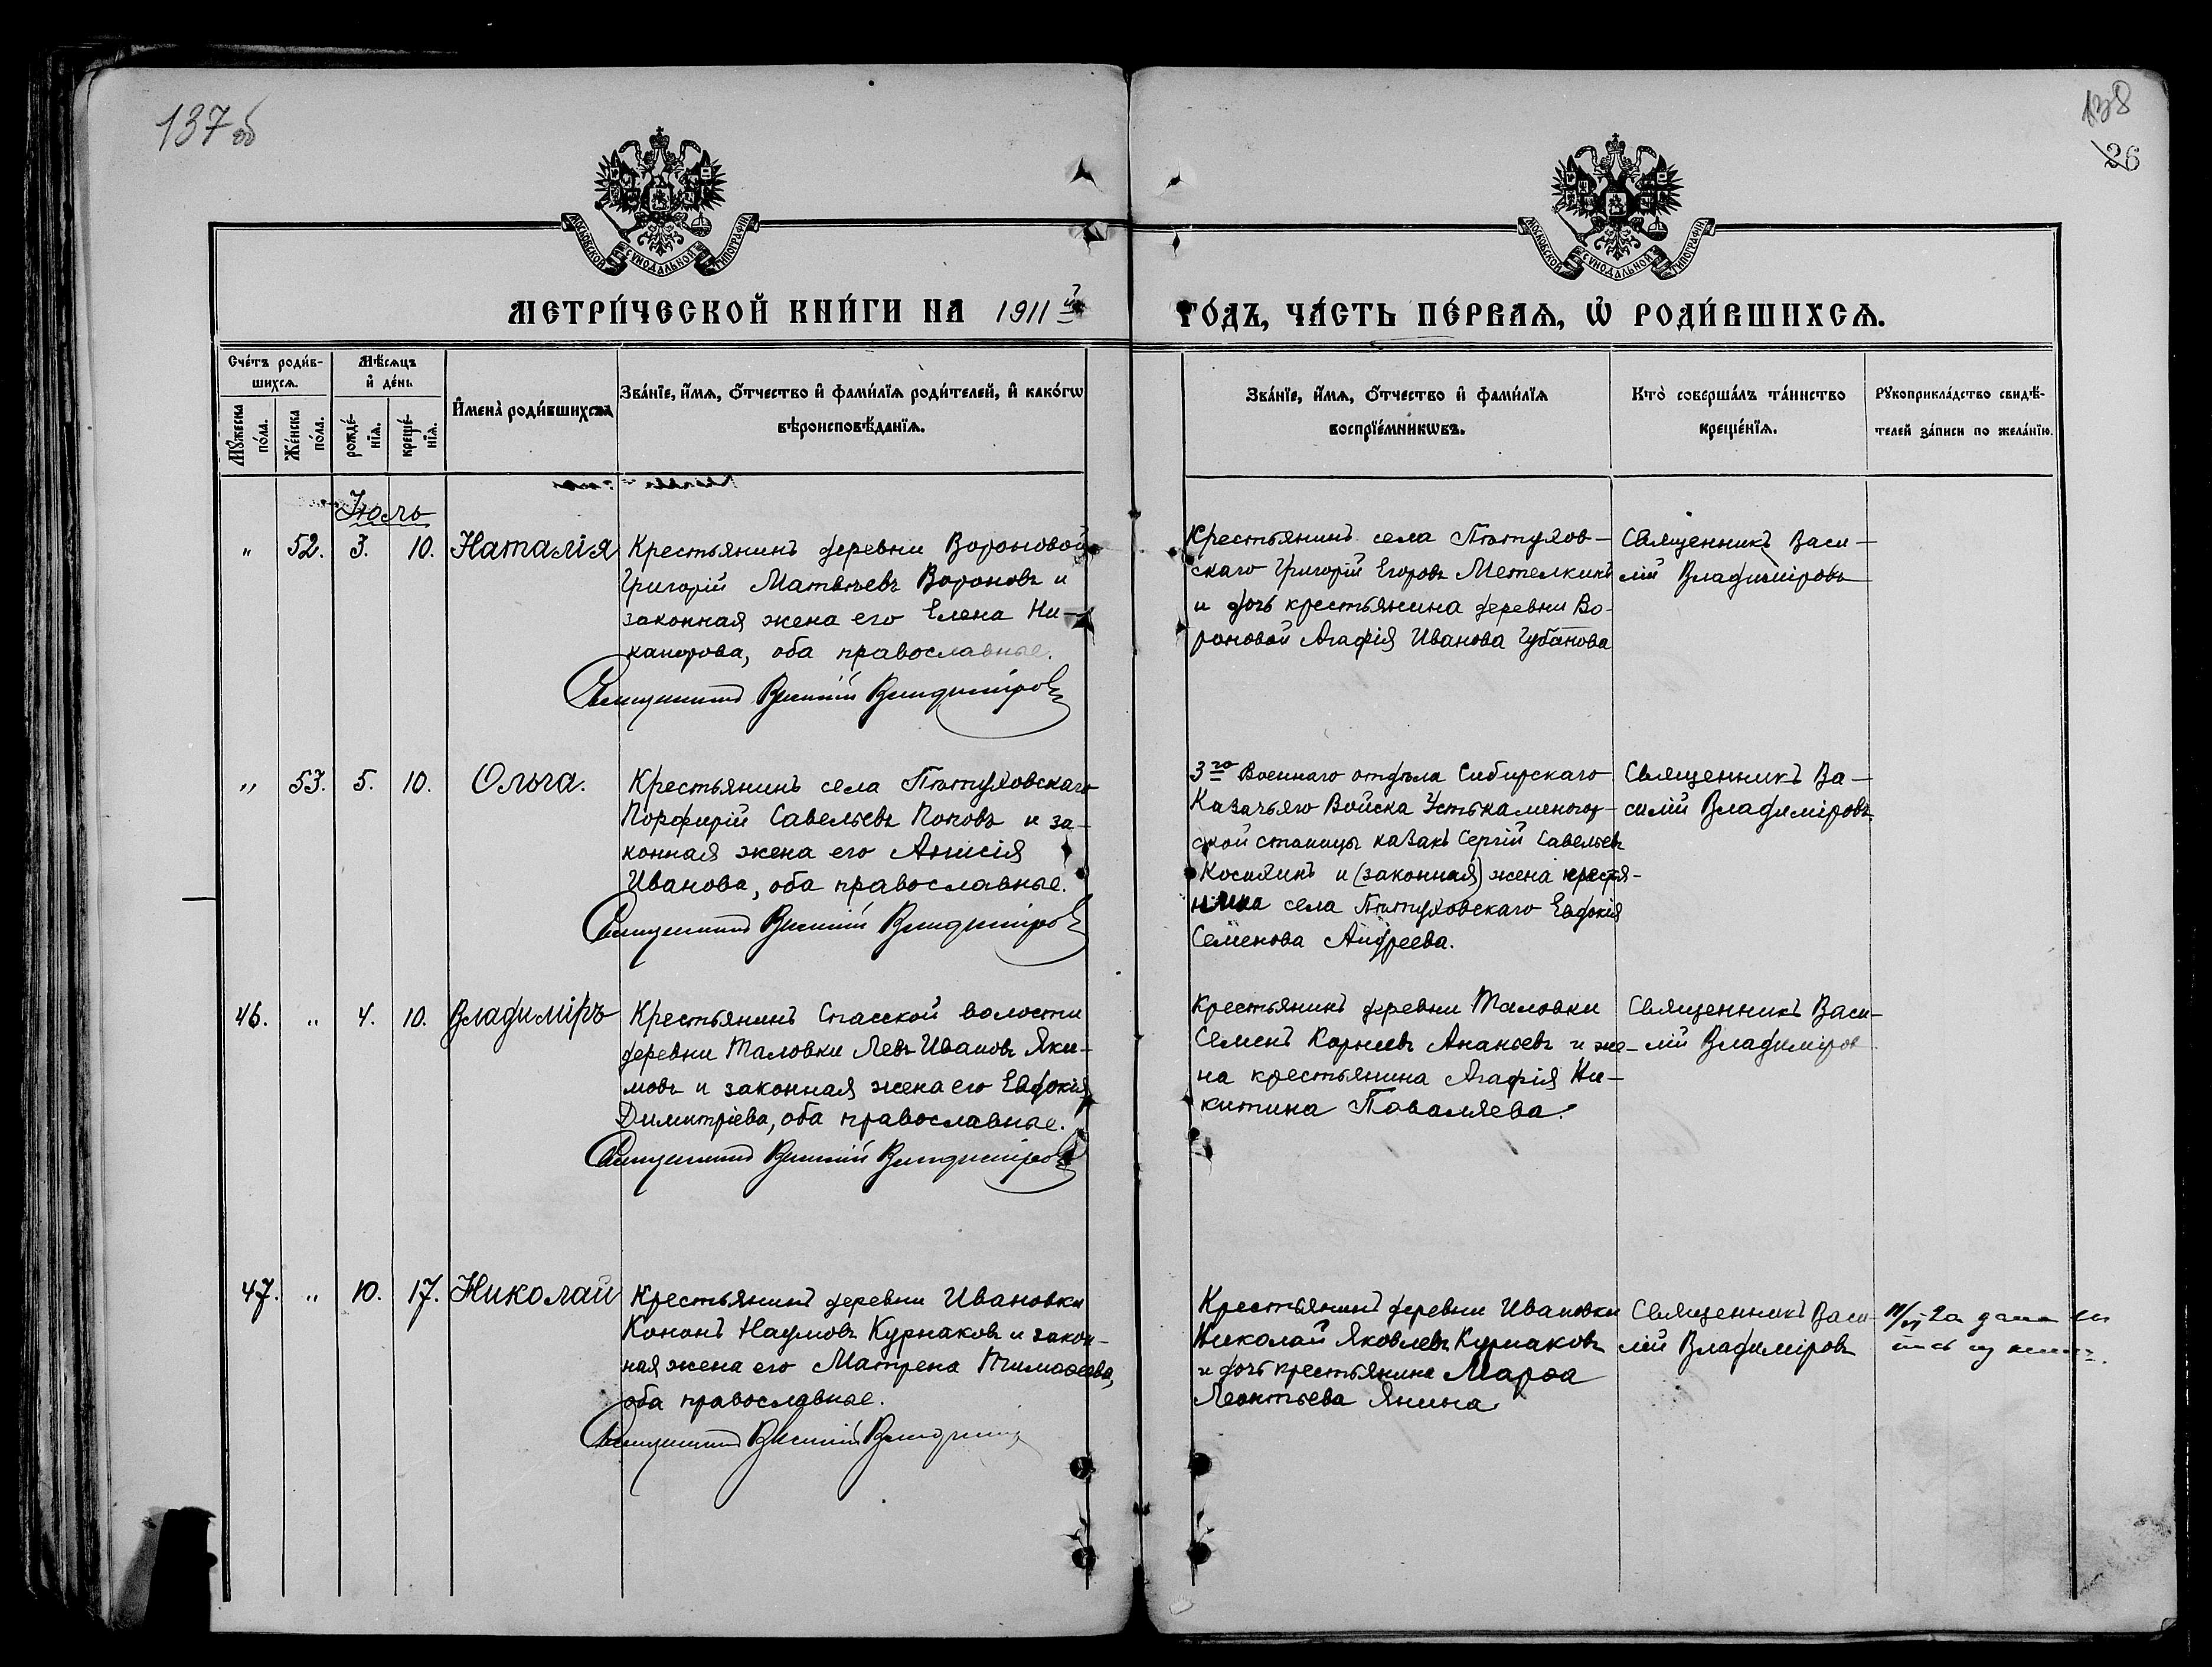 137 об
138
26
МОСКОВСКОЙ СѴНОДАЛЬНОЙ ТИПОГРАФІИ
МОСКОВСКОЙ СѴНОДАЛЬНОЙ ТИПОГРАФІИ
МЕТРИ́ЧЕСКОЙ КНИ́ГИ НА 1911й
ГО́ДЪ, ЧА́СТЬ ПЕ́РВАѦ, Ѡ҆ РОДИ́ВШИХСѦ.
Сче́тъ роди́в-
шихсѧ.
Мѣ́сѧцъ
и҆ де́нь
Мꙋ́жеска
по́ла.
Же́нска
по́ла.
рожде́-
нїѧ.
креще́-
нїѧ.
И҆мена̀ роди́вшихсѧ
Зва́нїе, и҆́мѧ, ѻ҆́тчество и҆ фами́лїѧ роди́телей, и҆ како́гѡ
вѣроисповѣ́данїѧ.
Зва́нїе, и҆́мѧ, ѻ҆́тчество и҆ фами́лїѧ
воспрїе́мникѡвъ.
Кто̀ соверша́лъ та́инство
креще́нїѧ.
Рꙋкоприкла́дство свидѣ́-
телей за́писи по жела́нїю.
Іюль
" 52. 3. 10. Наталія
Крестьянинъ деревни Вороновой
Григорій Матвѣевъ Вороновъ и
законная жена его Елена Ни-
канорова, оба православные.
Священникъ Василій Владиміровъ
Крестьянинъ села Пѣтухов-
скаго Григорій Егоровъ Метелкинъ
и дочь крестьянина деревни Во-
роновой Агафія Иванова Губанова
Священникъ Васи-
лій Владиміровъ
" 53. 5. 10. Ольга.
Крестьянинъ села Пѣтуховскаго
Порфирій Савельевъ Поповъ и за-
конная жена его Анисія
Иванова, оба православные.
Священникъ Василій Владиміровъ
3го Военнаго отдѣла Сибирскаго
Казачьяго Войска Устькаменогор-
ской станицы казакъ Сергій Савельевъ
Косилинъ и (законная) жена крестья-
нина села Пѣтуховскаго Евдокія
Семенова Андреева.
Священникъ Ва-
силій Владиміровъ
46. " 4. 10. Владиміръ
Крестьянинъ Спасской волости
деревни Таловки Левъ Ивановъ Яки-
мовъ и законная жена его Евдокія
Димитріева, оба православные.
Священникъ Василій Владиміровъ
Крестьянинъ деревни Таловки
Семенъ Корнеевъ Ананьевъ и же-
на крестьянина Агафія Ни-
китина Поваляева.
Священникъ Васи-
лій Владиміров
47. " 10. 17. Николай
Крестьянинъ деревни Ивановки
Кононъ Наумовъ Курнаковъ и закон-
ная жена его Матрена Тимоѳеева,
оба православные.
Священникъ Василій Владиміровъ
Крестьянинъ деревни Ивановки
Николай Яковлевъ Курнаковъ
и дочь крестьянина Марѳа
Леонтьева Янина
Священникъ Васи-
лій Владиміровъ